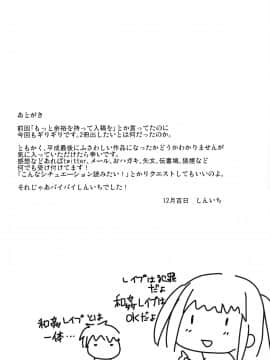 あとがき
前回「もっと余裕を持って入稿を」とか言ってたのに
今回もギリギリです。2冊出したいとは何だったのか。
ともかく、平成最後にふさわしい作品になったかどうかわかりませんが
気に入っていただけたら幸いです。
感想などあればtwitter、メール、おハガキ、矢文、伝書鳩、狼煙など
何でも受け付けてます！
「こんなシチュエーション読みたい！」とかリクエストしてもいいのよ。
それじゃあバイバイしんいちでした！
12月吉日 しんいち
レイプは犯罪
だよ
和姦レイプは
OKだよ
和姦レイプとは
一体…！